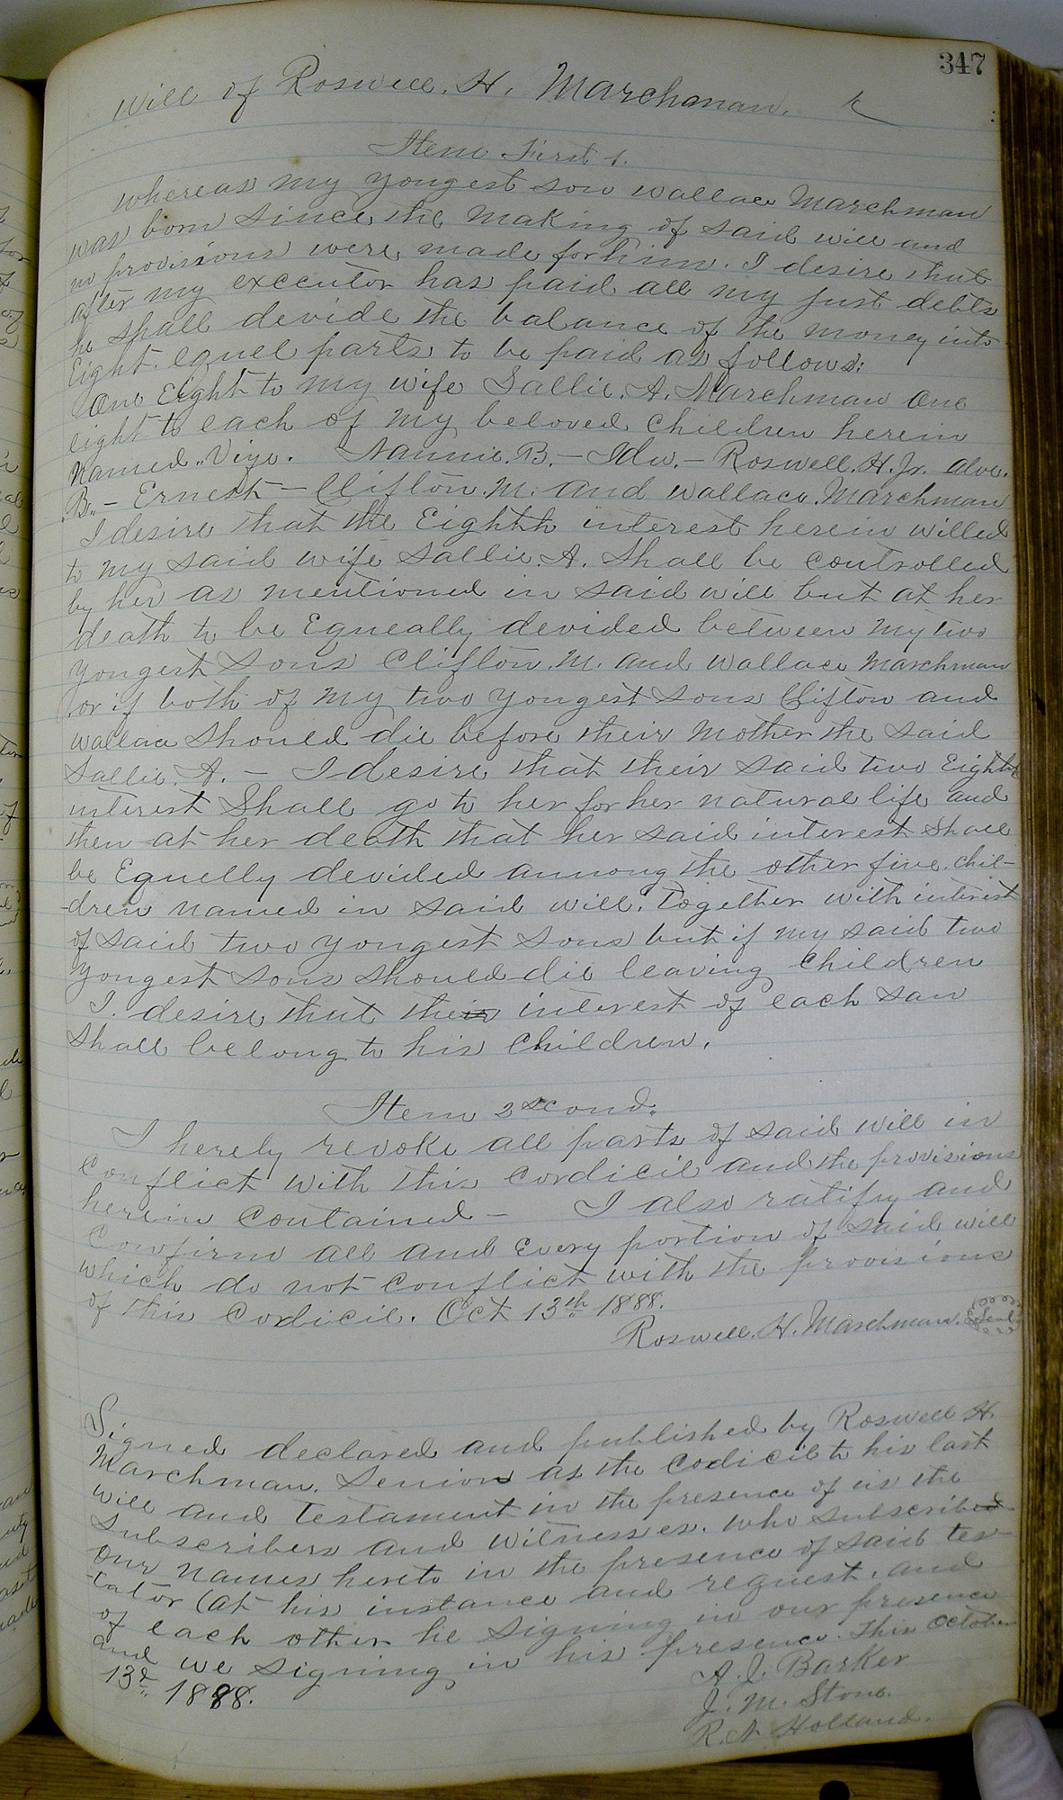 347
Will of Roswell. H. Marchman.
Item First 1.
Whereas my yongest son Wallace Marchman
was born since the making of said will and
no provisions were made for him. I desire that
after my executor has paid all my just debts
he shall devide the balance of the money into
Eight Equel parts to be paid as follows:
One Eight to my wife Sallie. A. Marchman One
eight to each of my beloved Children herein
Named. Viz. Nannie. B. - Ida. - Roswell. H. Jr. Alva.
B. - Ernest - Clifton. M. and Wallace. Marchman
I desire that the Eighth interest herein willed
to my said wife Sallie. A. Shall be controlled
by her as mentioned in said will but at her
death to be Equeally devided between my two
Yongest Sons Clifton. M. and Wallace Marchman
or if both of my two yongest sons Clifton and
Wallace should die before their Mother the said
Sallie. A. - I desire that their said two Eights
interest Shall go to her for her natural life and
then at her death that her said interest Shall
be Equelly devided annong the other five Chil-
-dren named in said will. together with interest
of said two yongest Sons but if my said two
Yongest Sons should die leaving Children
I. desire that their interest of each Son
Shall belong to his Children.
Item 2scond.
I hereby revoke all parts of said will in
Conflict with this Cordicil and the provisions
herein Contained - I also ratify and
Confirm all and Every portion of said will
which do not Conflict with the provisions
of this Cordicil. Oct 13th 1888.
Roswell. H. Marchman. Seal
Signed declared and published by Roswell H.
Marchman. Senior as the Codicil to his last
will and Testament in the presence of us the
Subscribers and witnesses. who subscribed
our names hereto in the presence of said tes-
-tator (at his instance and request. and
of each other he signing in our presence
and we signing in his presence. This October
13d 1888.
A. J. Barker
J. M. Stone.
R. N. Holland.